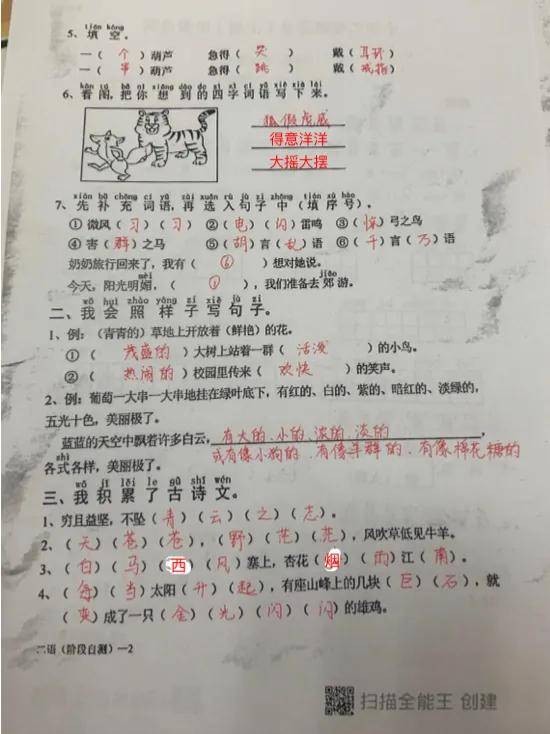 tián kòng
5、填 空。
一（ 个 ）葫芦 急得（ 哭 ） 戴（ 耳环 ）
一（ 串 ）葫芦 急得（ 跳 ） 戴（ 戒指 ）
kàn tú bǎ nǐ xiǎng dào de sì zì cí yǔ xiě xià lái
6、看图，把你想到的四字词语写下来。
狐假虎威
得意洋洋
大摇大摆
xiān bǔ chōng cí yǔ zài xuǎn rù jù zi zhōng tián xù hào
7、先补充词语，再选入句子中（填序号）。
①微风（ 习 ）（ 习 ） ②（ 电 ）（ 闪 ）雷鸣 ③（ 惊 ）弓之鸟
④害（ 群 ）之马 ⑤（ 胡 ）言（ 乱 ）语 ⑥（ 千 ）言（ 万 ）语
奶奶旅行回来了，我有（ ⑥ ）想对她说。
mèi jiāo
今天，阳光明媚，（ ① ），我们准备去郊游。
wǒ huì zhào yàng zi xiě jù zi
二、我会照样子写句子。
1、例：（青青的）草地上开放着（鲜艳）的花。
①（ 茂盛的 ）大树上站着一群（ 活泼 ）的小鸟。
②（ 热闹的 ）校园里传来（ 欢快 ）的笑声。
2、例：葡萄一大串一大串地挂在绿叶底下，有红的、白的、紫的、暗红的、淡绿的，
五光十色，美丽极了。
蓝蓝的天空中飘着许多白云，有大的、小的、浓的、淡的
shì
各式各样，美丽极了。 或有像小狗的、有像羊群的、有像棉花糖的
wǒ jī lěi le gǔ shī wén
三、我积累了古诗文。
1、穷且益坚，不坠（ 青 ）（ 云 ）（ 之 ）（ 志 ）。
2、（ 天 ）（ 苍 ）（ 苍 ），（ 野 ）（ 茫 ）（ 茫 ），风吹草低见牛羊。
3、（ 白 ）（ 马 ）（ 西 ）（ 风 ）塞上，杏花（ 烟 ）（ 雨 ）江（ 南 ）。
4、（ 每 ）（ 当 ）太阳（ 升 ）（ 起 ），有座山峰上的几块（ 巨 ）（ 石 ），就
（ 变 ）成了一只（ 金 ）（ 光 ）（ 闪 ）（ 闪 ）的雄鸡。
二语(阶段自测)—2
扫描全能王 创建